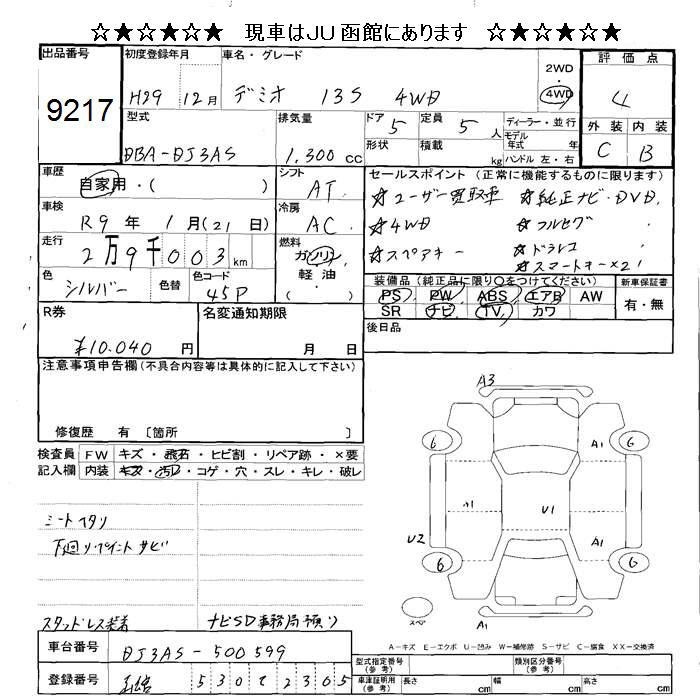 ☆★☆★☆★ 現車はJU函館にあります ☆★☆★☆★
出品番号
9217
初度登録年月
H29 12月
車名・グレード
デミオ 13S 4WD
2WD
・
4WD
評価点
4
外装 内装
C B
型式
DBA-DJ3AS
排気量
1,300 cc
ドア 5
定員 5 人
ディーラー・並行
モデル年式 年
形状
積載 kg
ハンドル 左・右
車歴
自家用・( )
シフト
AT
車検
R9年 1月(21日)
冷房
AC
走行
2万9千003km
燃料
ガソリン
軽油
( )
色
シルバー
色替
色コード
45P
セールスポイント(正常に機能するものに限ります)
☆ユーザー買取車 ☆純正ナビ・DVD
☆4WD ☆フルセグ
☆スペアキー ☆ドラレコ
☆スマートキー×2!
装備品(純正品に限り○をつけてください)
PS PW ABS エアB AW
SR ナビ TV カワ
新車保証書
有・無
R券
¥10,040 円
名変通知期限
月 日
後日品
注意事項申告欄(不具合内容等は具体的に記入して下さい)
修復歴 有 〔箇所 〕
検査員記入欄
FW キズ・飛石・ヒビ割・リペア跡・×要
内装 キズ・汚レ・コゲ・穴・スレ・キレ・破レ
シートヘタリ
下廻りペイント サビ
スタッドレス装着
ナビSD事務局預り
A3
6 A1 6
A1 U1
U2 A1
6 6
スペア A1
A-キズ E-エクボ U-凹み W-補修跡 S-サビ C-腐食 XX-交換済
車台番号
DJ3AS-500599
登録番号
函館 530 2305
型式指定番号(参考)
類別区分番号(参考)
車庫証明用(参考)
長さ cm
幅 cm
高さ cm